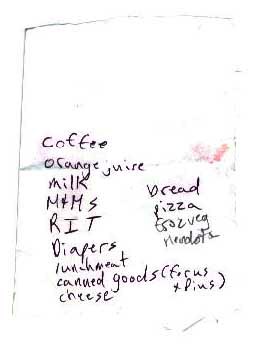 Coffee
orange juire
milk
M&Ms
RIT
Diapers
lunchmeat
canned goods (forus
+ Pius)
cheese
bread
pizza
froz veg